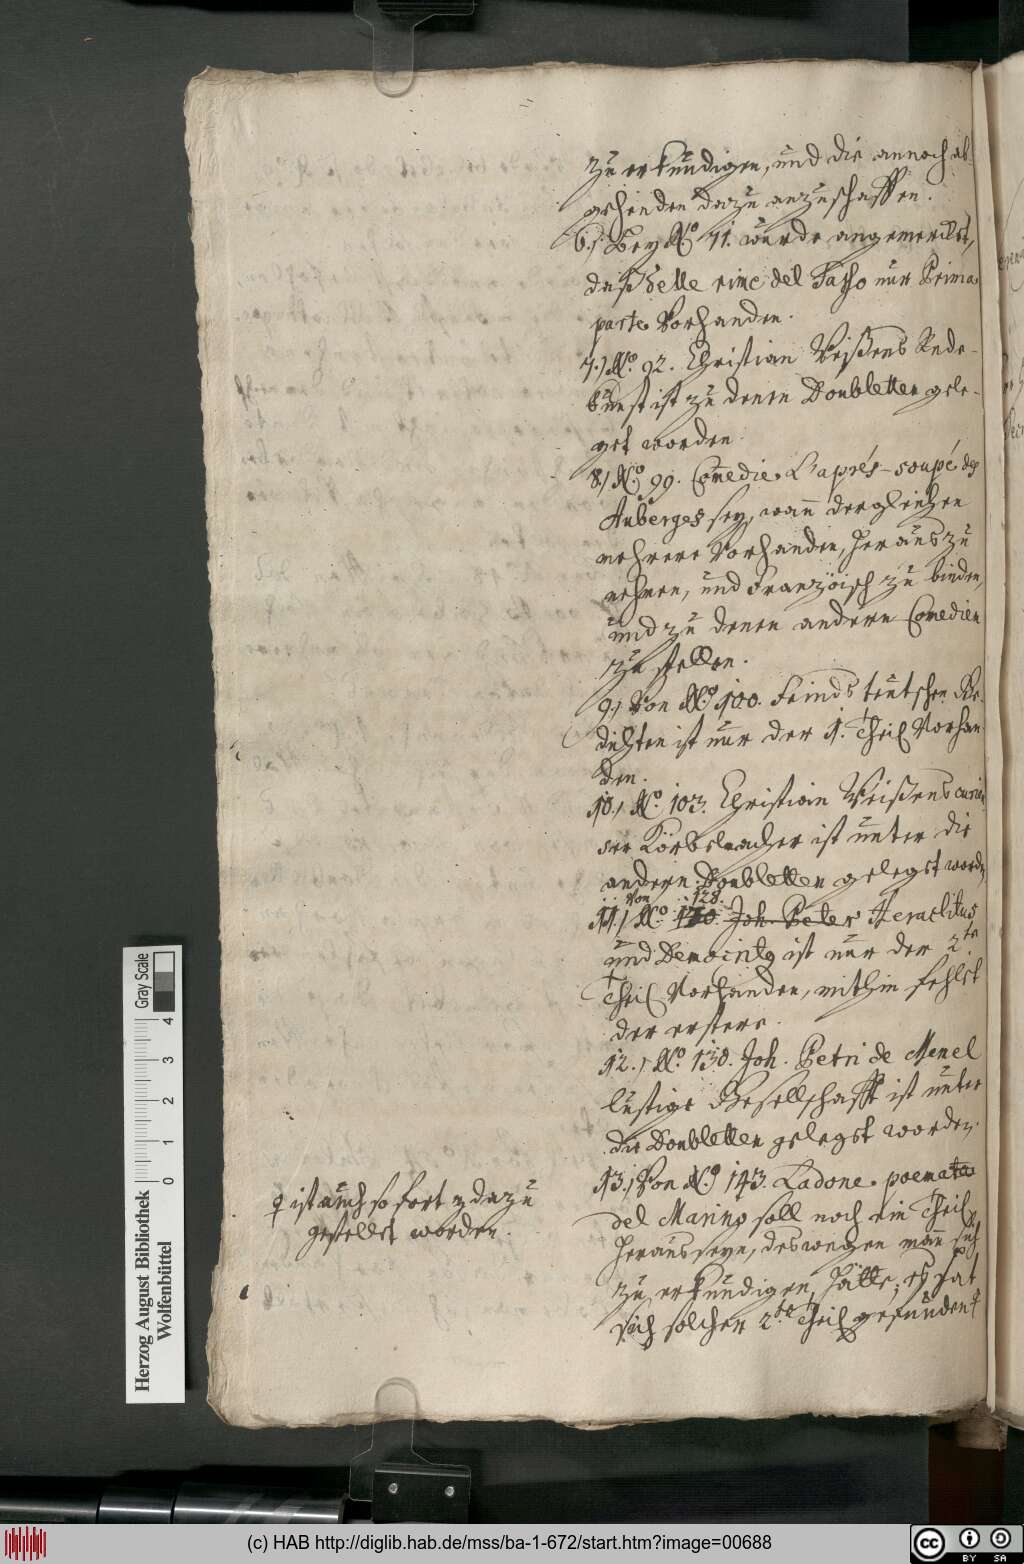 zu erkundigen, und die annoch ab-
gehenden dazu anzuschaffen.
6.) Bey No. 71. wurde angemerckt,
daß delle rime del Tasso nur Prima
parte Vorhanden.
7.) No. 92. Christian Weißens Rede-
kunst ist zu denen Doubletten gele-
get worden.
8.) No. 99. Comedie L'aprés-soupé des
Auberges sey, wann dergleichen
mehrere Vorhanden, heraus zu
nehmen, und Französisch zu binden,
und zu denen andern Comedien
zu stellen.
9.) Von No. 100. Feinds teutschen Ge-
dichten ist nur der 1. Theil Vorhan-
den.
10.) No. 103. Christian Weißens curieu-
ser Körbelmacher ist unter die
andern Doubletten gelegt worden
Von 128.
11.) No. Joh. Peter Heraclitus
und Democritg ist nur der 2te
Theil Vorhanden, mithin fehlet
der erstere.
12.) No. 138. Joh. Petri de Memel
lustige Gesellschafft ist unter
die Doubletten gelegt worden.
13.) Von No. 143. Ladone poemata
del Marino soll noch ein Theil
heraus seyn, deswegen mann sich
zu erkundigen hätte; es hat
sich solcher 2te Theil gefunden
ist auch so fort dazu
gestellet worden.
Herzog August Bibliothek
Wolfenbüttel
0 1 2 3 4
Gray Scale
(c) HAB http://diglib.hab.de/mss/ba-1-672/start.htm?image=00688
cc BY SA